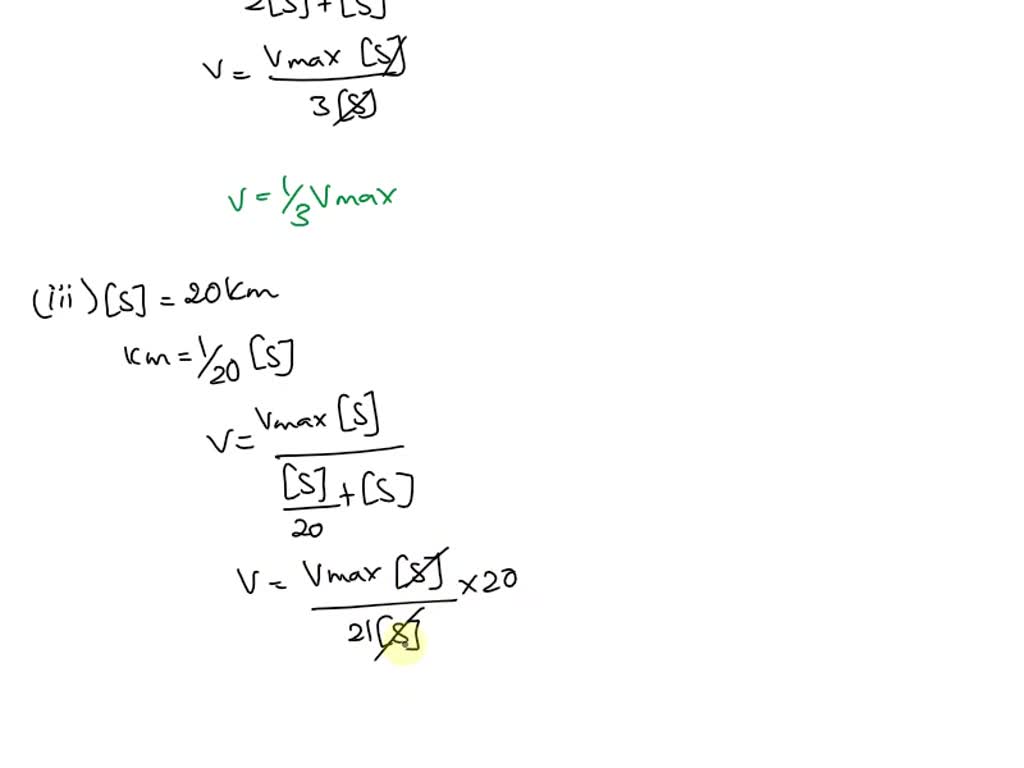 2[S]+[S]
V = Vmax [S]
3[S]
V = 1/3 Vmax
(iii) [S] = 20 Km
Km = 1/20 [S]
V = Vmax [S]
[S] + [S]
20
V = Vmax [S] × 20
21[S]